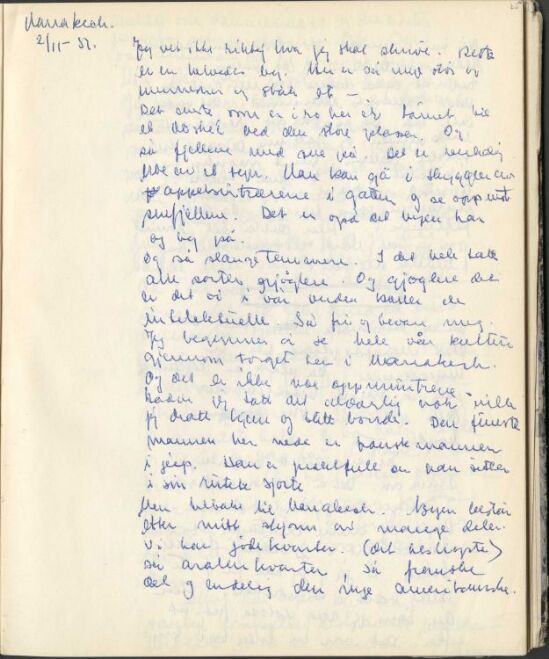 Marrakech.
2/11-51.
25
Jeg vet ikke riktig hva jeg skal skrive. Dette
er en by. Her er så mye støv og
mennesker og
Det eneste som er i ro her er tårnet like
et ved den store plassen. Og
så fjellene med snø på. Det er
et syn. Man kan gå i skyggen av
appelsintrærne i gaten og se opp mot
snøfjellene. Det er også det byen har
og by på.
Og så slangetemmere. I det hele tatt
alle sorter gjøglere. Og gjøglere det
er det vi i vår verden kaller de
intelektuelle. Så fri og bevare meg.
Jeg begynner å se hele vår kultur
gjennom torget her i Marrakech.
Og det er ikke noe oppmuntrende
hadde jeg tatt det alvorlig nok ville
jeg dratt hjem og blitt bonde. Den fineste
mannen her nede er mannen
i jeep. Han er som han sitter
i sin skjorte
Men tilbake til Marrakech. Byen består
etter mitt skjønn av mange deler.
Vi har jødekvarter. (det )
så araberkvarter så franske
del og endelig den nye amerikanske.